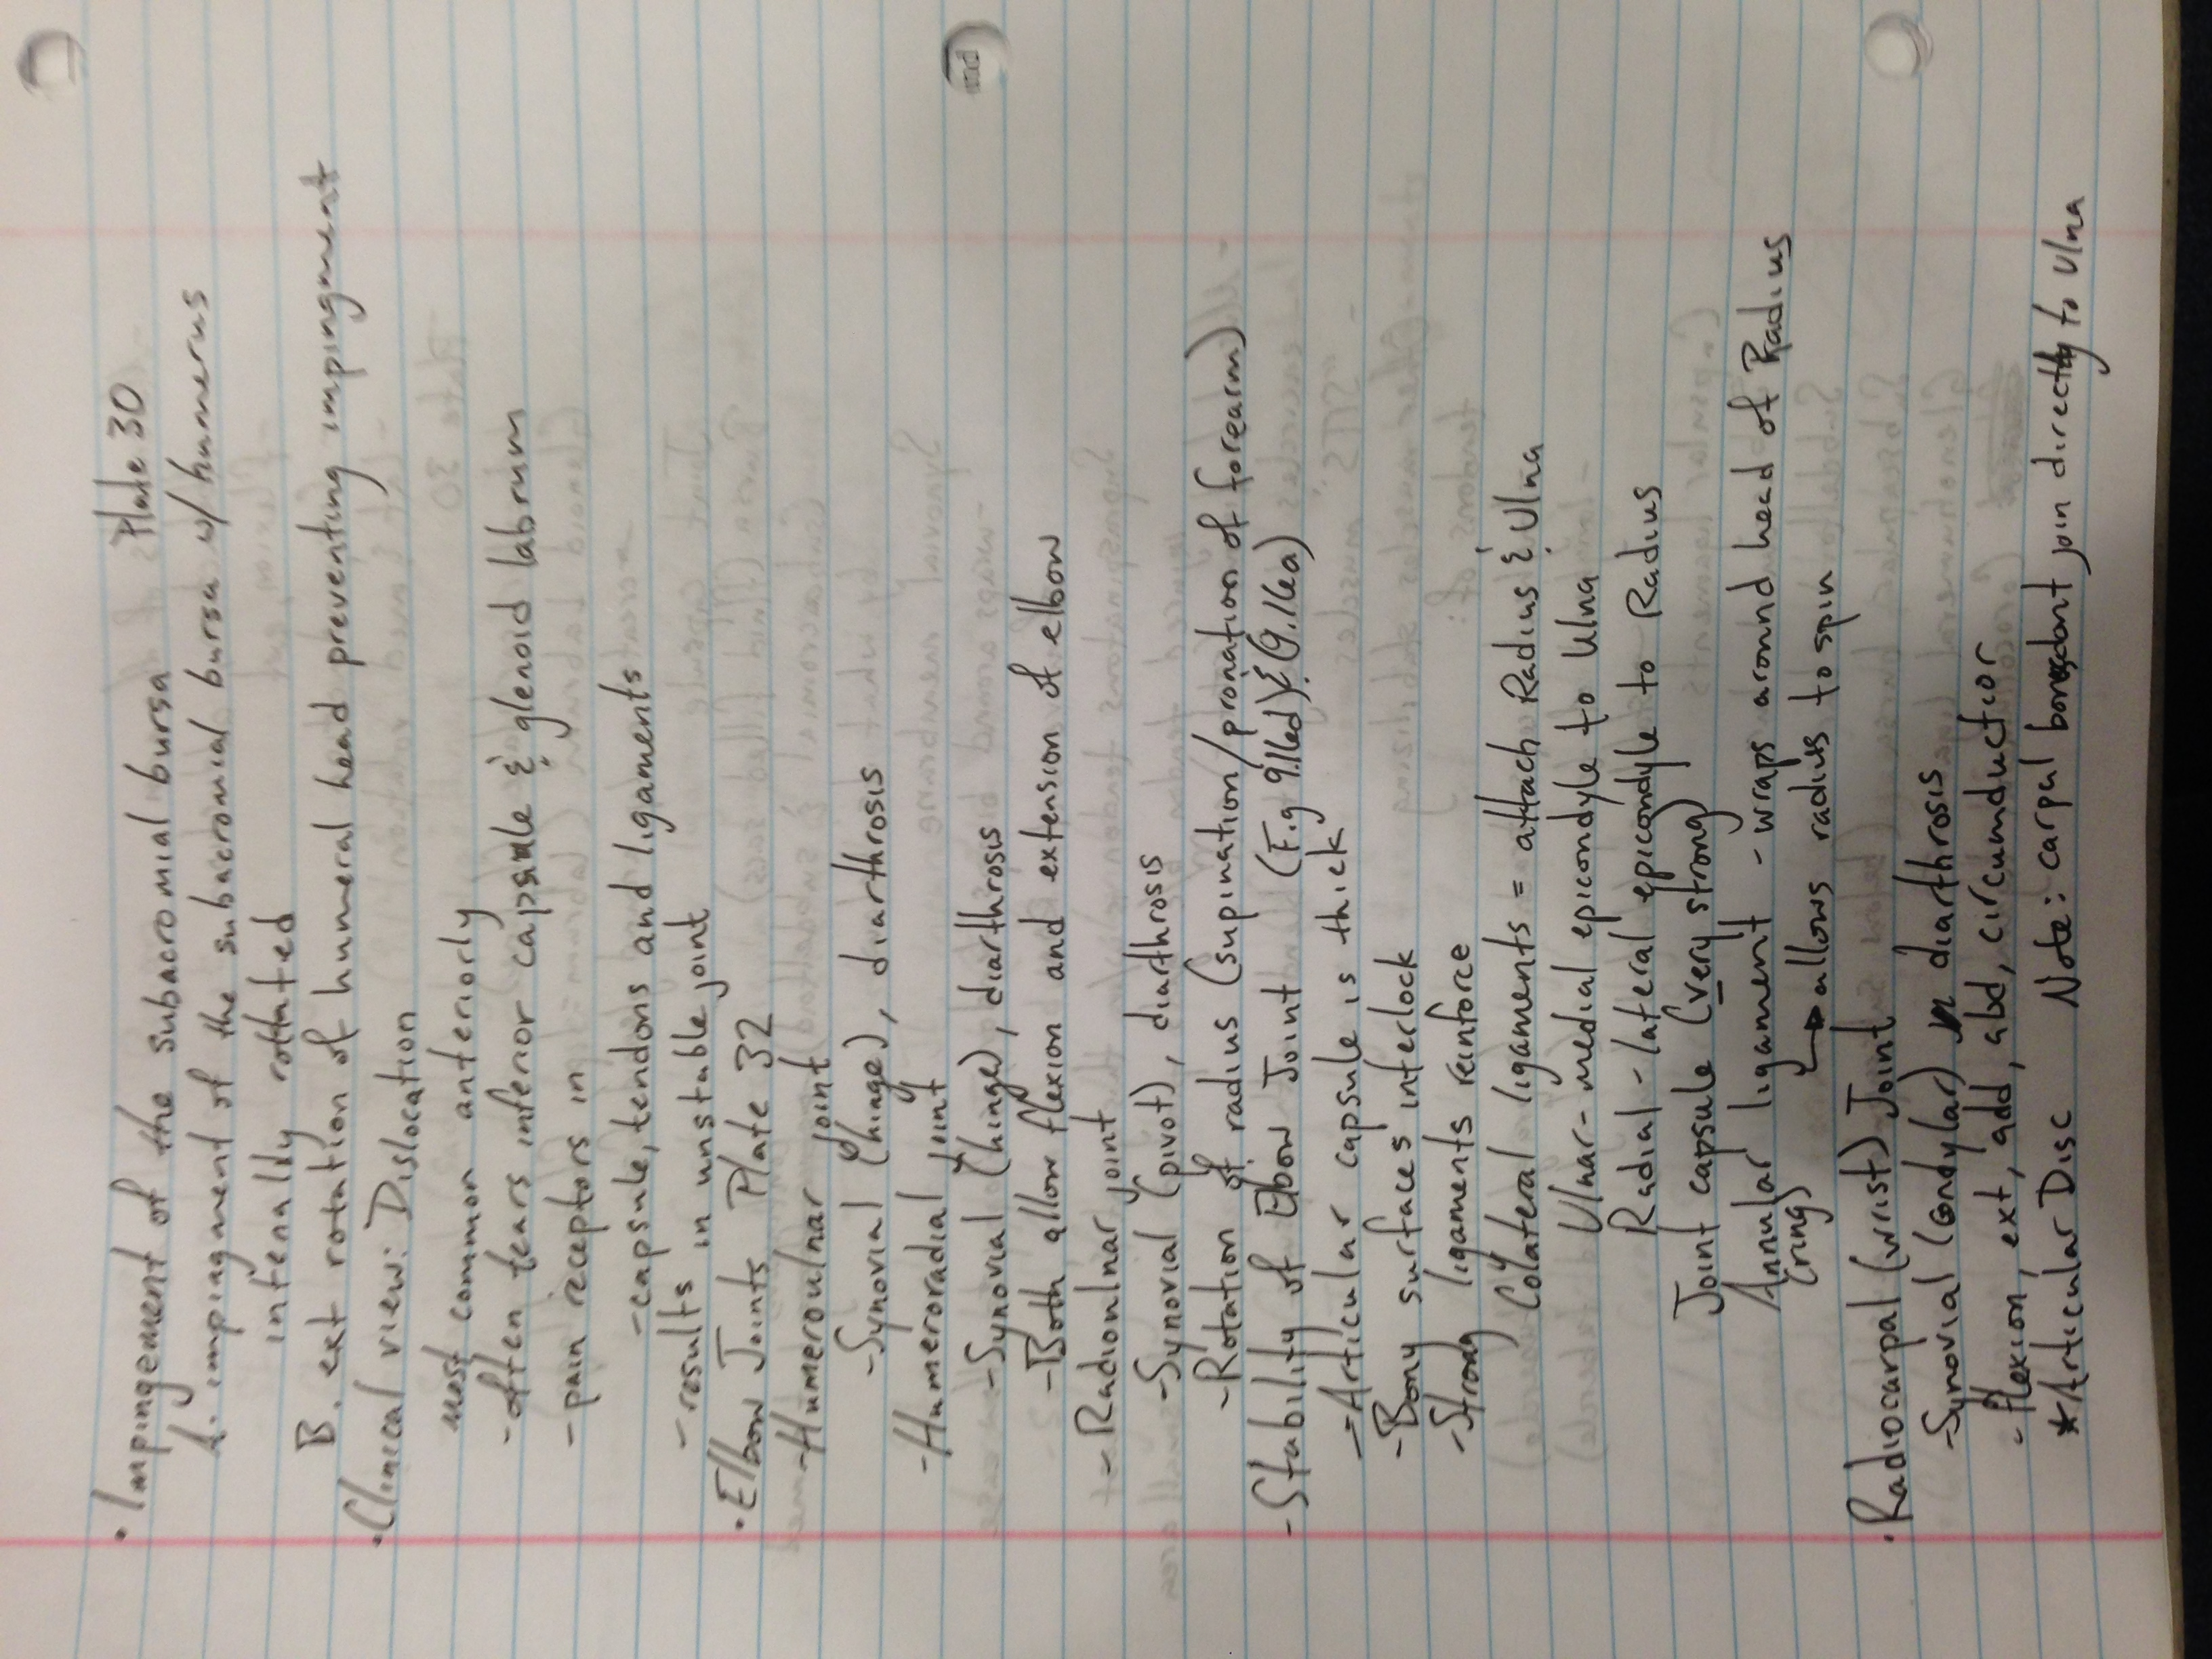 • Impingement of the subacromial bursa Plate 30
A. impingment of the subacromial bursa w/ humerus
intenally rottated
B. ext rotation of humeral head preventing impingment
• Clinical view: Dislocation
most common anteriorly
- often tears inferior capsule & glenoid labrum
- pain receptors in
- capsule, tendons and ligaments
- results in unstable joint
• Elbow Joints Plate 32
- Humeroulnar joint
- Synovial (hinge), diarthrosis
- Humeroradial joint
- Synovial (hinge), diarthrosis
- Both allow flexion and extension of elbow
- Radioulnar joint
- Synovial (pivot), diarthrosis
- Rotation of radius (supination/pronation of forearm)
- Stability of Elbow Joint (Fig 9.11ed) & (9.16a)
- Articular capsule is thick
- Bony surfaces interlock
- Strong ligaments reinforce
Colateral ligaments = attach Radius & Ulna
Ulnar - medial epicondyle to Ulna
Radial - lateral epicondyle to Radius
Joint capsule (very strong)
Annular ligament - wraps around head of Radius
(ring) → allows radius to spin
• Radiocarpal (wrist) Joint
- Synovial (condylar) diarthrosis
- flexion, ext, add, abd, circumductor
* Articular Disc Note: carpal bones dont join directly to Ulna